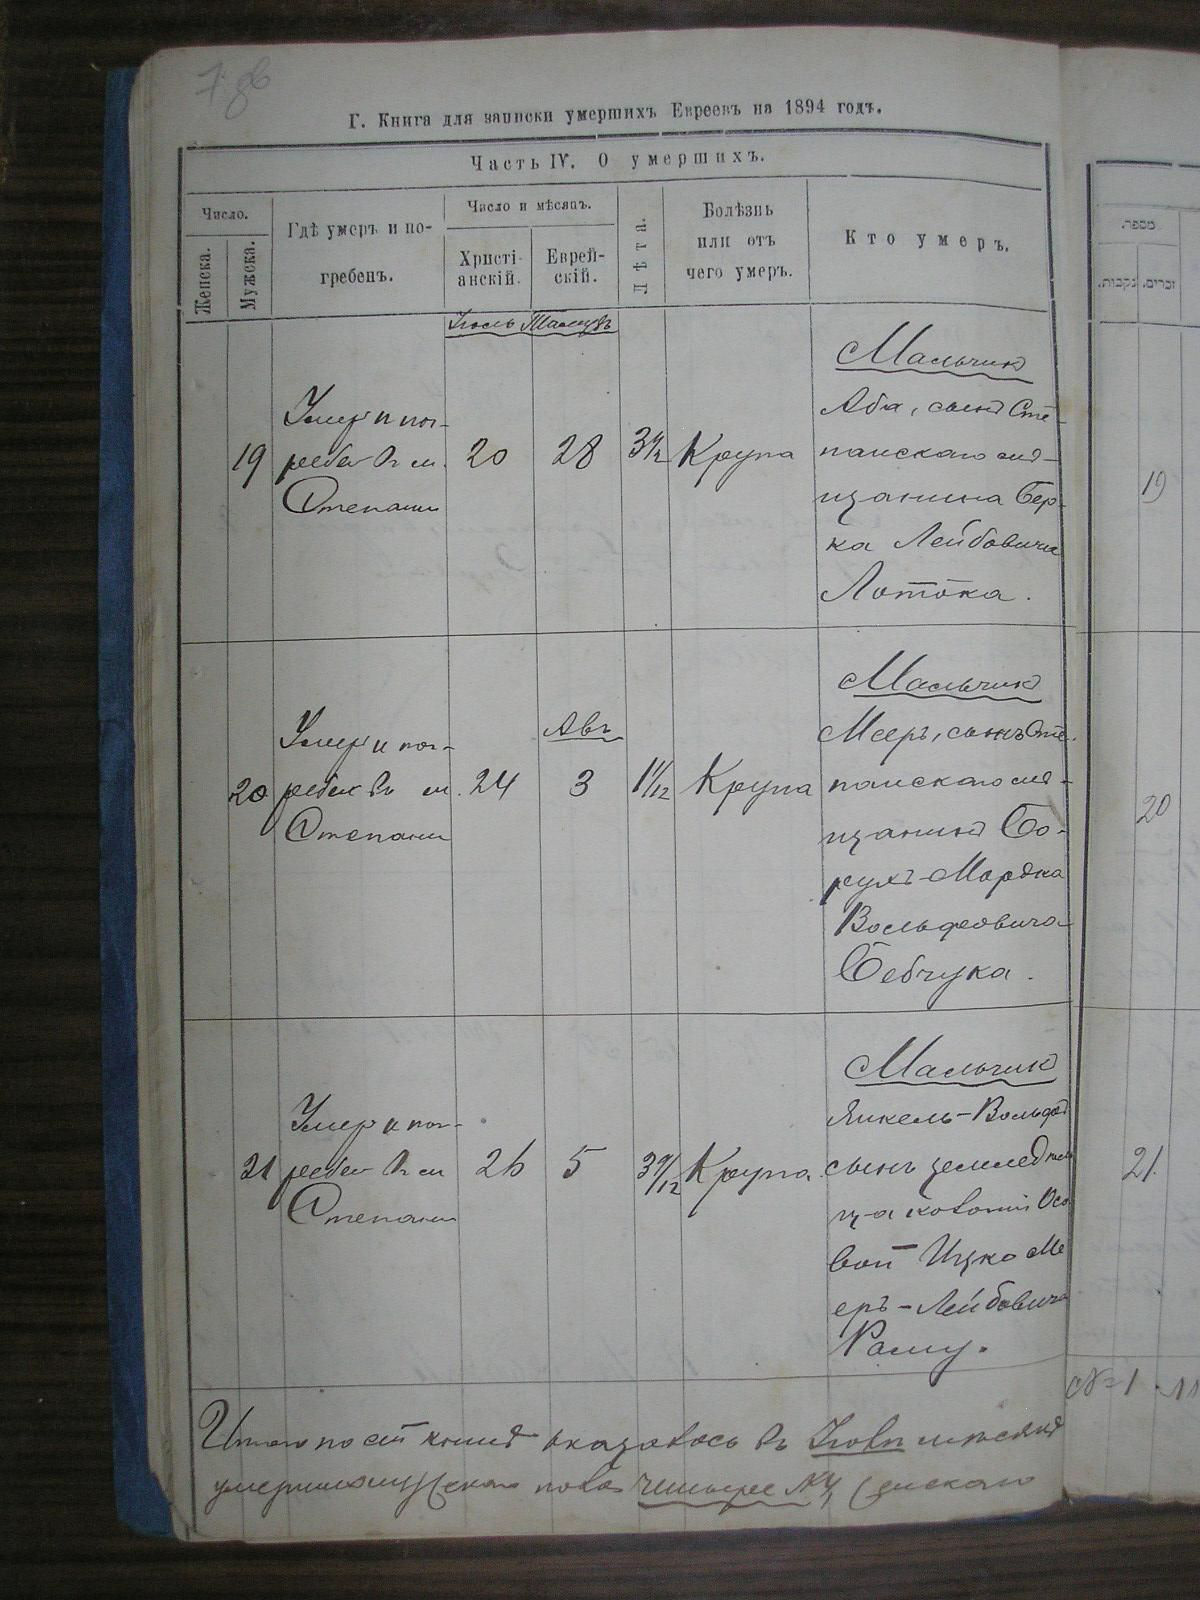 Г. Книга для записки умершихъ Евреевъ на 1894 годъ.
Часть IV. О умершихъ.
Число.
Женска.
Мужска.
Гдѣ умеръ и по-
гребенъ.
Число и мѣсяцъ.
Христі-
анскій.
Еврей-
скій.
Лѣта.
Болѣзнь
или отъ
чего умеръ.
Кто умеръ.
Іюль Тамузъ
19
Умер и пог-
ребен въ м.
Степани
20
28
Крупа
Мальчик
Аба, сынъ Сте-
панскаго мѣ-
щанина Бер-
ка Лейбовича
Лотока.
20
Умер и пог-
ребен въ м.
Степани
24
Авъ
3
1 1/12
Крупа
Мальчик
Меер, сынъ Сте-
панскаго мѣ-
щанина Бо-
рухъ-Мордка
Вольфовича
Бебчука.
21
Умер и пог-
ребен въ м
Степани
26
5
Крупа
Мальчик
Янкель-Вольф
сынъ земледѣль
ца колоніи Осо
вой Ицко Ме
еръ-Лейбовича
Итого по сей книгѣ оказалось въ Іюлѣ мѣсяцѣ
умершихъ мужскаго пола четыре № 4, женскаго
מספר.
נקבות.
זכרים.
19
20
21.
№ 1